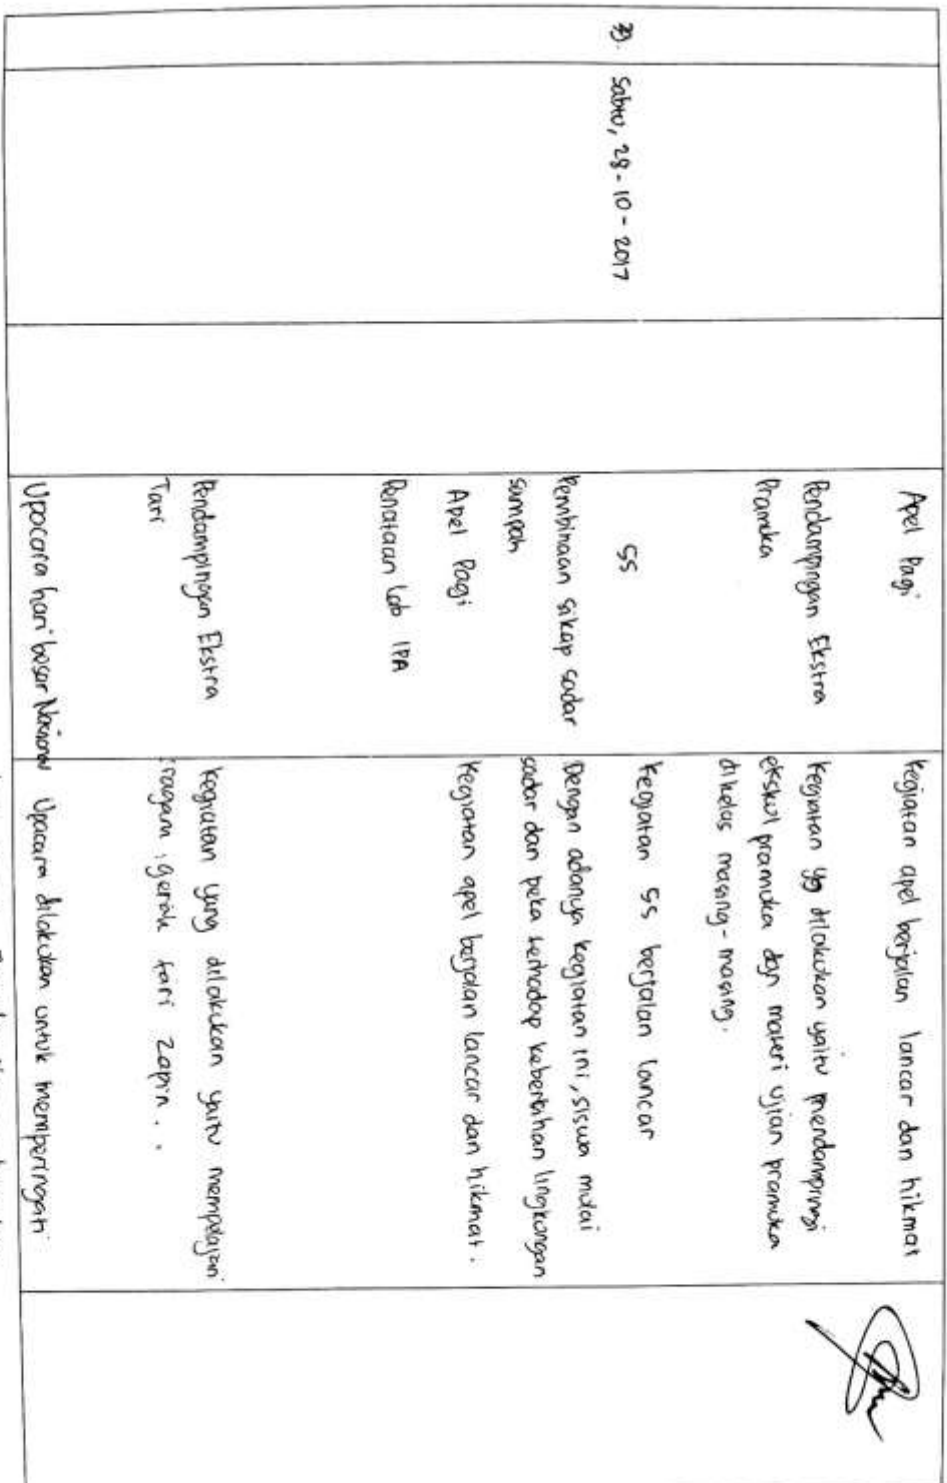 Apel Pagi
Kegiatan apel berjalan lancar dan hikmat
Pendampingan Ekstra
Pramuka
Kegiatan yg dilakukan yaitu mendampingi
ekskul pramuka dgn materi ujian pramuka
di kelas masing-masing.
Sabtu, 28-10-2017
5S
Kegiatan 5S berjalan lancar
Pembinaan sikap sadar
sampah
Dengan adanya kegiatan ini, siswa mulai
sadar dan peka terhadap kebersihan lingkungan
Apel Pagi
Kegiatan apel berjalan lancar dan hikmat.
Penataan Lab IPA
Pendampingan Ekstra
Tari
Kegiatan yang dilakukan yaitu mempelajari
ragam gerak tari zapin..
Upacara hari besar Nasional
Upacara dilakukan untuk memperingati